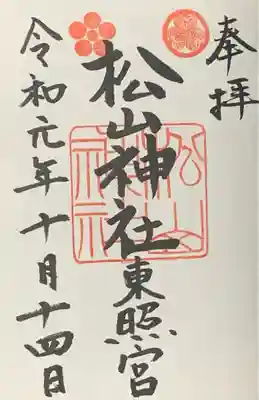 奉拝
松山神社東照宮
令和元年十月十四日